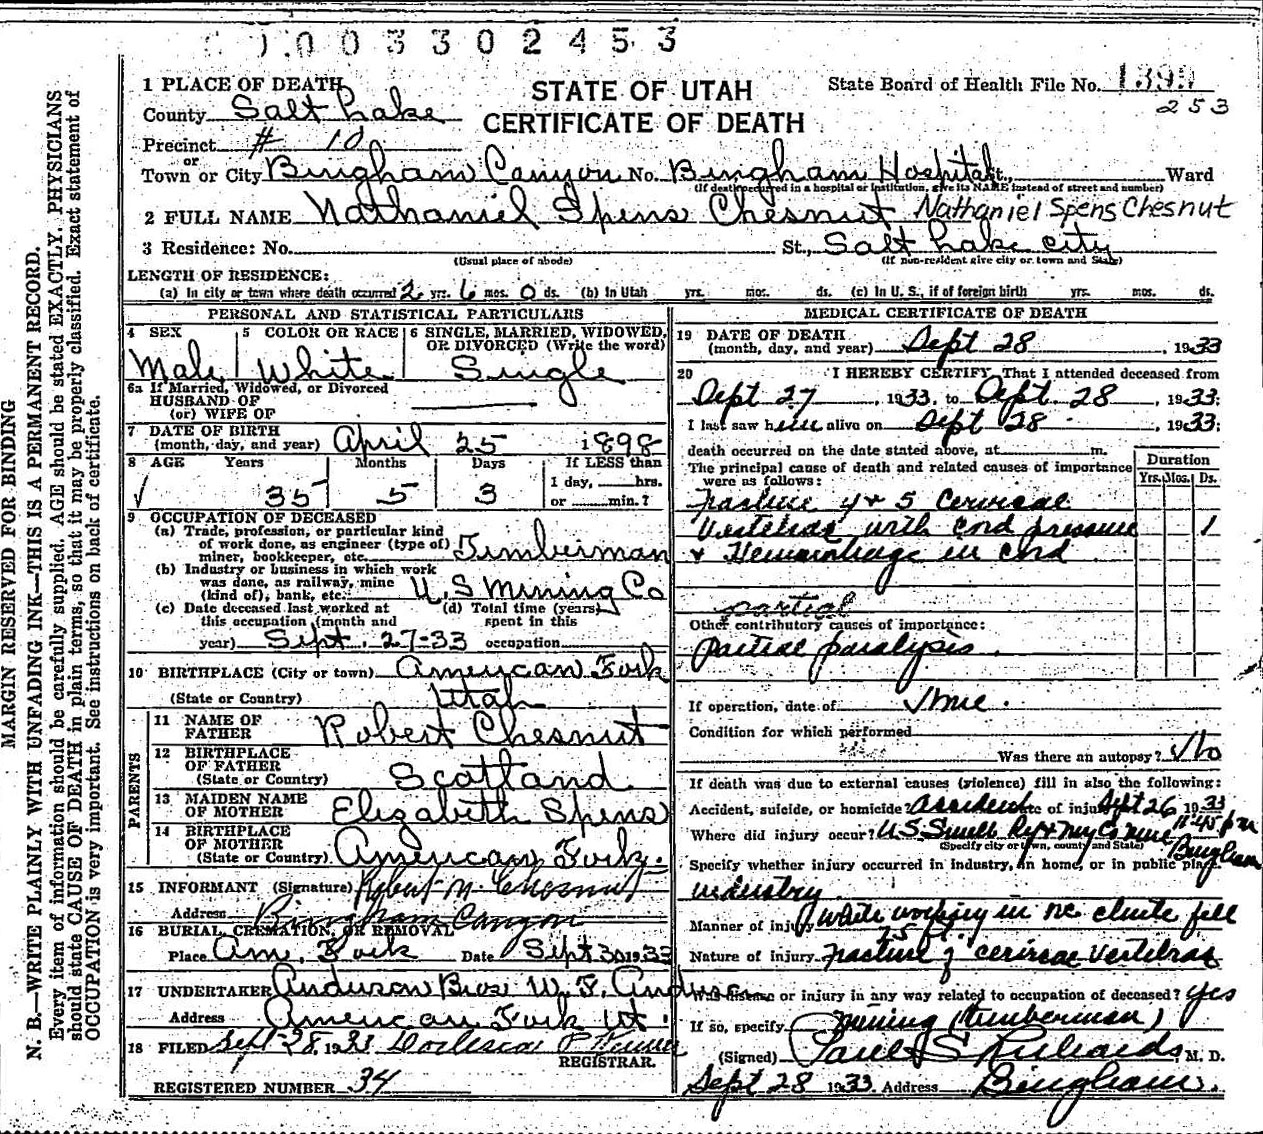 0 0 3 3 0 2 4 5 3
1 PLACE OF DEATH
STATE OF UTAH
CERTIFICATE OF DEATH
State Board of Health File No. 1399
253
County Salt Lake
Precinct # 10
Town or City Bingham Canyon No. Bingham Hospital St., Ward
(If death occurred in a hospital or institution, give its NAME instead of street and number)
2 FULL NAME Nathaniel Spens Chesnut Nathaniel Spens Chesnut
3 Residence: No. St., Salt Lake City
(Usual place of abode) (If non-resident give city or town and State)
LENGTH OF RESIDENCE:
(a) In city or town where death occurred 2 yrs. 6 mos. 0 ds. (b) In Utah yrs. mos. ds. (c) In U. S., if of foreign birth yrs. mos. ds.
PERSONAL AND STATISTICAL PARTICULARS
4 SEX 5 COLOR OR RACE 6 SINGLE, MARRIED, WIDOWED, OR DIVORCED (Write the word)
Male White Single
6a If Married, Widowed, or Divorced
HUSBAND OF
(or) WIFE OF
7 DATE OF BIRTH
(month, day, and year) April 25 1898
8 AGE Years Months Days If LESS than
1 day, hrs.
35 5 3 or min.?
9 OCCUPATION OF DECEASED
(a) Trade, profession, or particular kind
of work done, as engineer (type of)
miner, bookkeeper, etc. Timberman
(b) Industry or business in which work
was done, as railway, mine
(kind of), bank, etc. U.S Mining Co
(c) Date deceased last worked at
this occupation (month and
year) Sept. 27-33
(d) Total time (years)
spent in this
occupation
10 BIRTHPLACE (City or town) American Fork
(State or Country) Utah
PARENTS
11 NAME OF
FATHER Robert Chesnut
12 BIRTHPLACE
OF FATHER
(State or Country) Scotland
13 MAIDEN NAME
OF MOTHER Elizabeth Spens
14 BIRTHPLACE
OF MOTHER
(State or Country) American Fork.
15 INFORMANT (Signature) Robert N. Chesnut
Address Bingham Canyon
16 BURIAL, CREMATION, OR REMOVAL
Place Am. Fork Date Sept 30 1933
17 UNDERTAKER Anderson Bros W. F. Anderson
Address American Fork Ut.
18 FILED Sept 28, 1933
REGISTRAR.
REGISTERED NUMBER 34
MEDICAL CERTIFICATE OF DEATH
19 DATE OF DEATH
(month, day, and year) Sept 28, 1933
20 I HEREBY CERTIFY, That I attended deceased from
Sept 27, 1933, to Sept. 28, 1933;
I last saw him alive on Sept 28, 1933;
death occurred on the date stated above, at m.
The principal cause of death and related causes of importance
were as follows:
Duration
Yrs. Mos. Ds.
Fracture 4 + 5 Cervical
Vertebrae with cord pressure 1
+ Hemorrhage in cord
partial
Other contributory causes of importance:
partial paralysis.
If operation, date of None.
Condition for which performed
Was there an autopsy? No
If death was due to external causes (violence) fill in also the following:
Accident, suicide, or homicide? Accident Date of injury Sept 26 1933
11-45 pm
Where did injury occur? U.S. Smelt Ref & Mg Co mine Bingham
(Specify city or town, county and State)
Specify whether injury occurred in industry, in home, or in public place
industry
Manner of injury while working in ore chute fell
25 ft.
Nature of injury Fracture of cervical vertebrae
Was disease or injury in any way related to occupation of deceased? yes
If so, specify mining (timberman)
(Signed) Paul S Richards, M. D.
Sept 28 1933 Address Bingham.
MARGIN RESERVED FOR BINDING
N. B.—WRITE PLAINLY WITH UNFADING INK—THIS IS A PERMANENT RECORD.
Every item of information should be carefully supplied. AGE should be stated EXACTLY. PHYSICIANS
should state CAUSE OF DEATH in plain terms, so that it may be properly classified. Exact statement of
OCCUPATION is very important. See instructions on back of certificate.